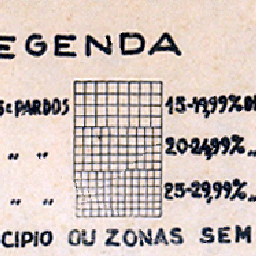 EGENDA
S e PARDOS 15-19,99% D
„ „ 20-24,99% „
„ „ 25-29,99% „
CIPIO OU ZONAS SEM